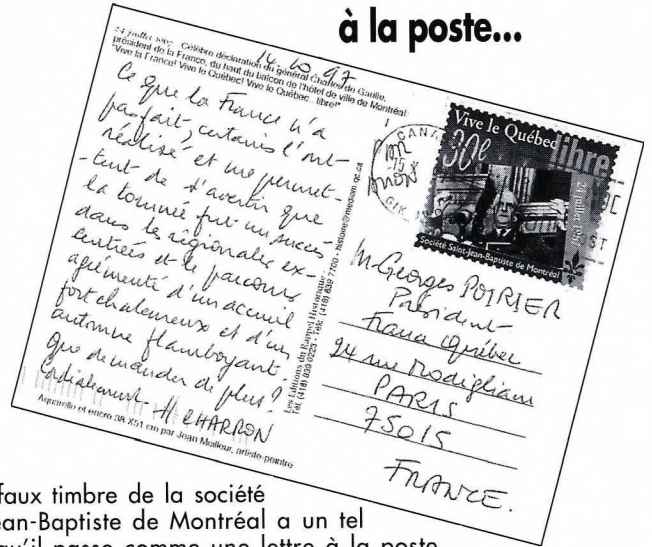 à la poste...
24 juillet 1967 - Célèbre déclaration du général Charles de Gaulle,
président de la France, du haut du balcon de l'hôtel de ville de Montréal:
"Vive la France! Vive le Québec! Vive le Québec... libre!"
14.10.97
Ce que la France n'a
pas fait, certains l'ont
réalisé et me permet-
-tent de t'avertir que
la tournée fut un succès
dans les régionales ex-
centrées et le parcours
agrémenté d'un accueil
fort chaleureux et d'un
automne flamboyant
Que demander de plus?
Cordialement - H CHARRON
Aquarelle et encre 38 X51 cm par Jean Mailleur, artiste-peintre
Les Editions du Rappel Historique
Tél. (418) 839 0223 - Téléc. (418) 839 7760 - histoire@mediom.qc.ca
CANA
-15
G1K
Vive le Québec
libre
30¢
24 juillet 1967
Société Saint-Jean-Baptiste de Montréal
ST
M. Georges POIRIER
Président
France Québec
24 rue Modigliani
PARIS
75015
FRANCE.
faux timbre de la société
ean-Baptiste de Montréal a un tel
u'il passe comme une lettre à la poste